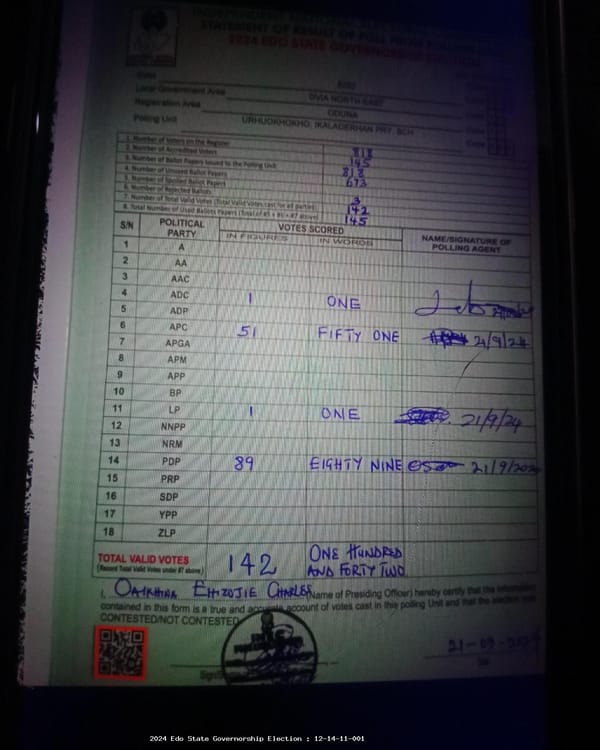 STATEMENT OF RESULT OF POLL FROM POLLING
2024 EDO STATE GOVERNORSHIP ELECTION
State EDO
Local Government Area OVIA NORTH EAST
Registration Area ODUNA
Polling Unit URHUOKHOKHO, IKALADERHAN PRY. SCH
1. Number of Voters on the Register 818
2. Number of Accredited Voters 145
3. Number of Ballot Papers Issued to the Polling Unit 818
4. Number of Unused Ballot Papers 673
5. Number of Spoiled Ballot Papers
6. Number of Rejected Ballots 3
7. Number of Total Valid Votes (Total Valid Votes cast for all parties) 142
8. Total Number of Used Ballots Papers (Total of #5 + #6 + #7 above) 145
S/N POLITICAL PARTY VOTES SCORED NAME/SIGNATURE OF POLLING AGENT
IN FIGURES IN WORDS
1 A
2 AA
3 AAC
4 ADC 1 ONE
5 ADP
6 APC 51 FIFTY ONE 21/9/24
7 APGA
8 APM
9 APP
10 BP
11 LP 1 ONE 21/9/24
12 NNPP
13 NRM
14 PDP 89 EIGHTY NINE 21/9/2024
15 PRP
16 SDP
17 YPP
18 ZLP
TOTAL VALID VOTES 142 ONE HUNDRED AND FORTY TWO
(Record Total Valid Votes under #7 above)
I, OAIKHINA EHIZOJIE CHARLES (Name of Presiding Officer) hereby certify that the information
contained in this form is a true and accurate account of votes cast in this polling Unit and that the election was
CONTESTED/NOT CONTESTED
21-09-2024
2024 Edo State Governorship Election : 12-14-11-001